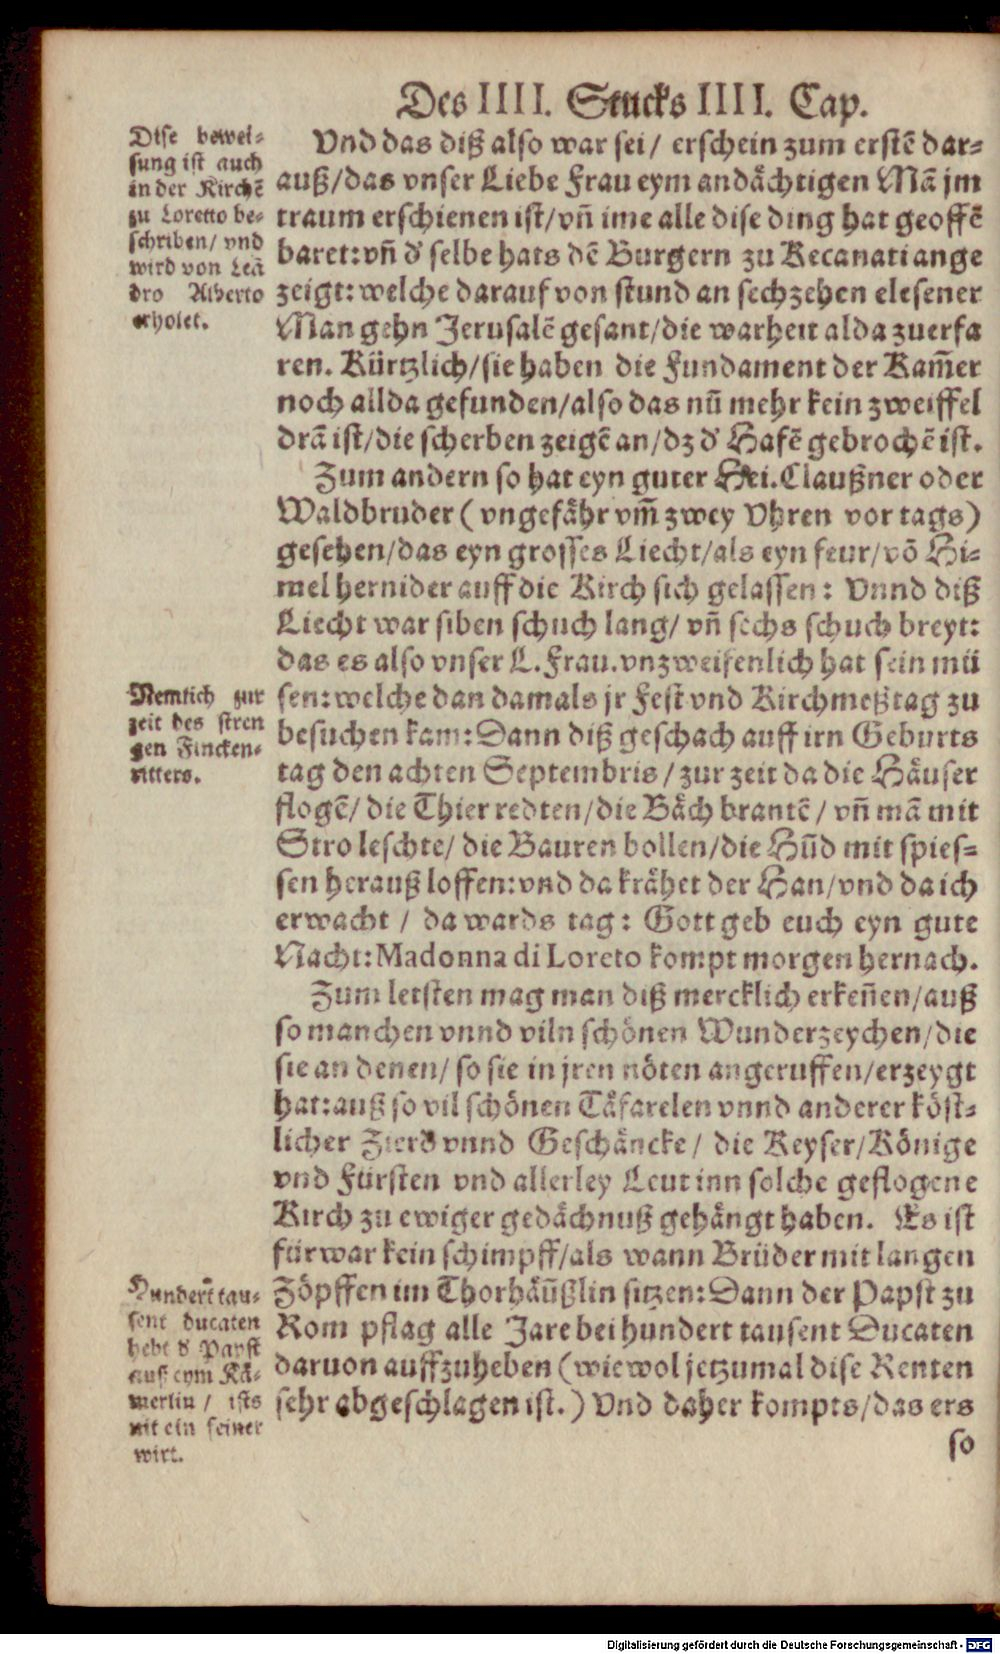 Des IIII. Stucks IIII. Cap.
Dise bewei-
sung ist auch
in der Kirchē
zu Loretto be-
schriben/ vnd
wird von Leā
dro Alberto
erholet.
Vnd das diß also war sei/ erschein zum erstē dar-
auß/das vnser Liebe Frau eym andächtigen Mā jm
traum erschienen ist/vn̄ ime alle dise ding hat geoffē
baret:vn̄ d' selbe hats dē Burgern zu Recanati ange
zeigt:welche darauf von stund an sechzehen elesener
Man gehn Jerusalē gesant/die warheit alda zuerfa
ren. Kürtzlich/sie haben die Fundament der Kam̄er
noch allda gefunden/also das nū mehr kein zweiffel
drā ist/die scherben zeigē an/dz d' Hafē gebrochē ist.
Zum andern so hat eyn guter Hei. Claußner oder
Waldbruder (vngefähr vm̄ zwey Vhren vor tags)
gesehen/das eyn grosses Liecht/als eyn feur/vō Hi-
mel hernider auff die Kirch sich gelassen: Vnnd diß
Liecht war siben schuch lang/ vn̄ sechs schuch breyt:
das es also vnser L. Frau.vnzweifenlich hat sein mü
sen:welche dan damals jr Fest vnd Kirchmeßtag zu
besuchen kam:Dann diß geschach auff irn Geburts
tag den achten Septembris/zur zeit da die Häuser
flogē/die Thier redten/die Bäch brantē/vn̄ mā mit
Stro leschte/ die Bauren bollen/die Hūd mit spies-
sen herauß loffen:vnd da krähet der Han/vnd da ich
erwacht / da wards tag: Gott geb euch eyn gute
Nacht:Madonna di Loreto kompt morgen hernach.
Nemlich zur
zeit des stren
gen Fincken-
ritters.
Zum letsten mag man diß mercklich erken̄en/auß
so manchen vnnd viln schönen Wunderzeychen/die
sie an denen/ so sie in jren nöten angeruffen/erzeygt
hat:auß so vil schönen Täfarelen vnnd anderer köst-
licher Zierd vnnd Geschäncke/ die Keyser/Könige
vnd Fürsten vnd allerley Leut inn solche geflogene
Kirch zu ewiger gedächnuß gehängt haben. Es ist
fürwar kein schimpff/als wann Brüder mit langen
Zöpffen im Thorhäußlin sitzen:Dann der Papst zu
Rom pflag alle Jare bei hundert tausent Ducaten
daruon auffzuheben (wiewol jetzumal dise Renten
sehr abgeschlagen ist.) Vnd daher kompts/das ers
Hundert tau-
sent ducaten
hebt d' Papst
auß eym Kä-
merlin/ ists
nit ein feiner
wirt.
so
Digitalisierung gefördert durch die Deutsche Forschungsgemeinschaft - DFG